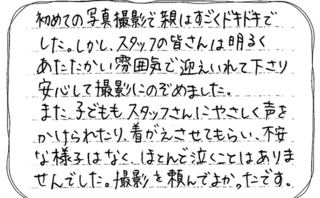 初めての写真撮影で親はすごくドキドキで
した。しかし、スタッフの皆さんは明るく
あたたかい雰囲気で迎えいれて下さり
安心して撮影にのぞめました。
また、子どももスタッフさんにやさしく声を
かけられたり、着がえさせてもらい、不安
な様子はなく、ほとんで泣くことはありま
せんでした。撮影を頼んでよかったです。